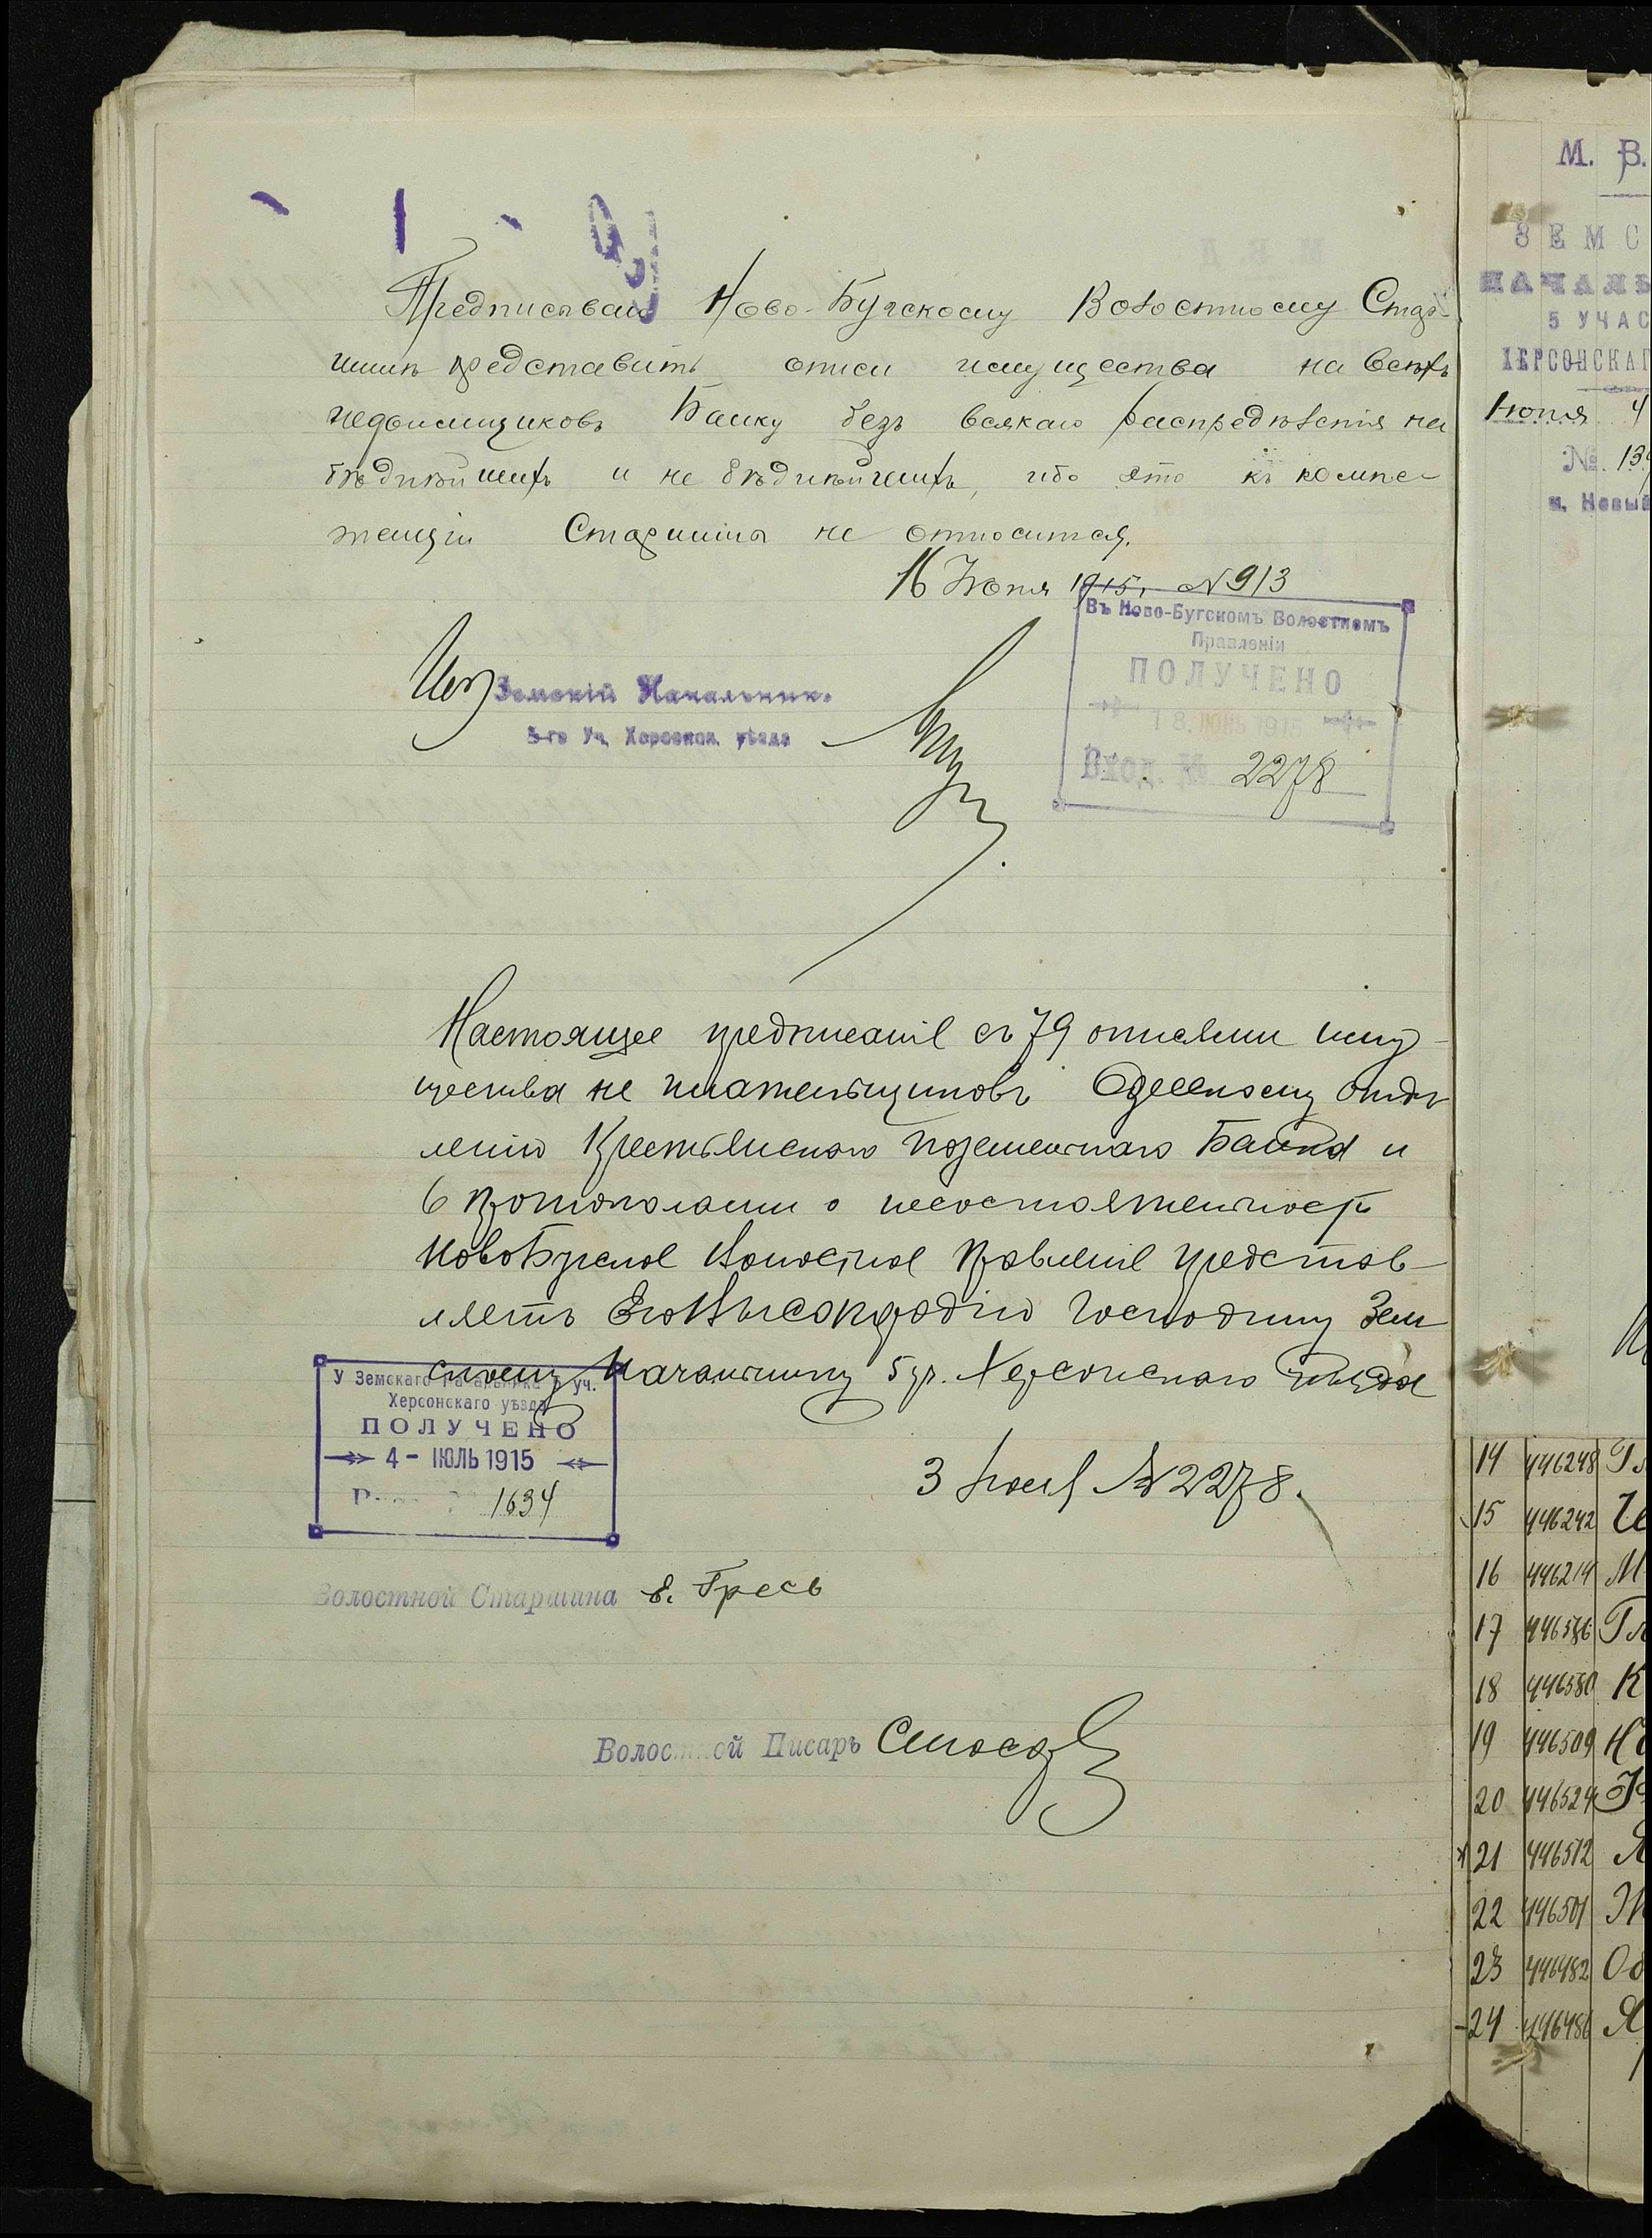 Предписываю Ново-Бугскому Волостному Стар-
шинѣ представить описи имущества на всѣхъ
недоимщиковъ Банку безъ всякаго распредѣленія на
бѣднѣйшихъ и не бѣднѣйшихъ, ибо это къ компе-
тенціи Старшины не относится.
16 Іюня 1915, №913
Въ Ново-Бугскомъ Волостномъ
Правленіи
ПОЛУЧЕНО
18 ІЮНЬ 1915
Вход. № 2278
Земскій Начальникъ
5-го Уч. Херсонск. уѣзда
Настоящее предписаніе съ 79 описями иму-
щества не плательщиковъ Одесскому отдѣ
ленію Крестьянскаго Поземельнаго Банка и
6 протоколами о несостоятельности
НовоБугское Волостное Правленіе представ-
ляетъ Его Высокородію Господину Зем
скому Начальнику 5 уч. Херсонскаго уѣзда
У Земскаго Начальника 5 уч.
Херсонскаго уѣзда
ПОЛУЧЕНО
4 - ІЮЛЬ 1915
1634
3 Іюля №2278.
Волостной Старшина Е. Гресь
Волостной Писарь
М. В.
ЗЕМС
НАЧАЛЬ
5 УЧАС
ХЕРСОНСКАГ
Іюня 4
№ 13
м. Новый
14 446248
15 446242
16 446214
17 446586
18 446580
19 446509
20 446524
21 446512
22 446501
23 446482
24 446486